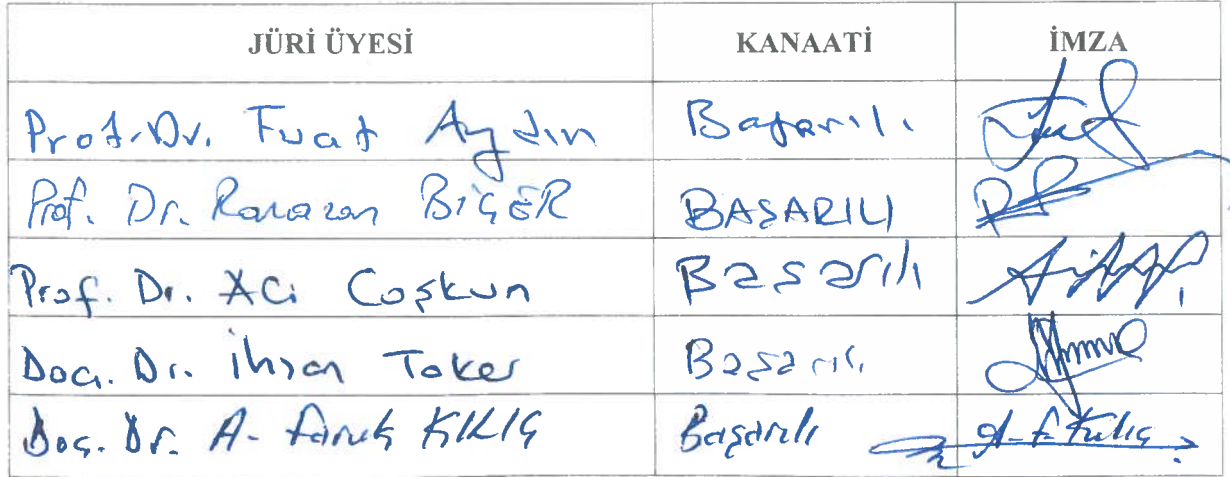 JÜRİ ÜYESİ KANAATİ İMZA
Prof. Dr. Fuat Aydın Başarılı
Prof. Dr. Ramazan BİÇER BAŞARILI
Prof. Dr. Ali Coşkun Başarılı
Doç. Dr. İhsan Toker Başarılı
Doç. Dr. A. Faruk KILIÇ Başarılı A. F. Kılıç